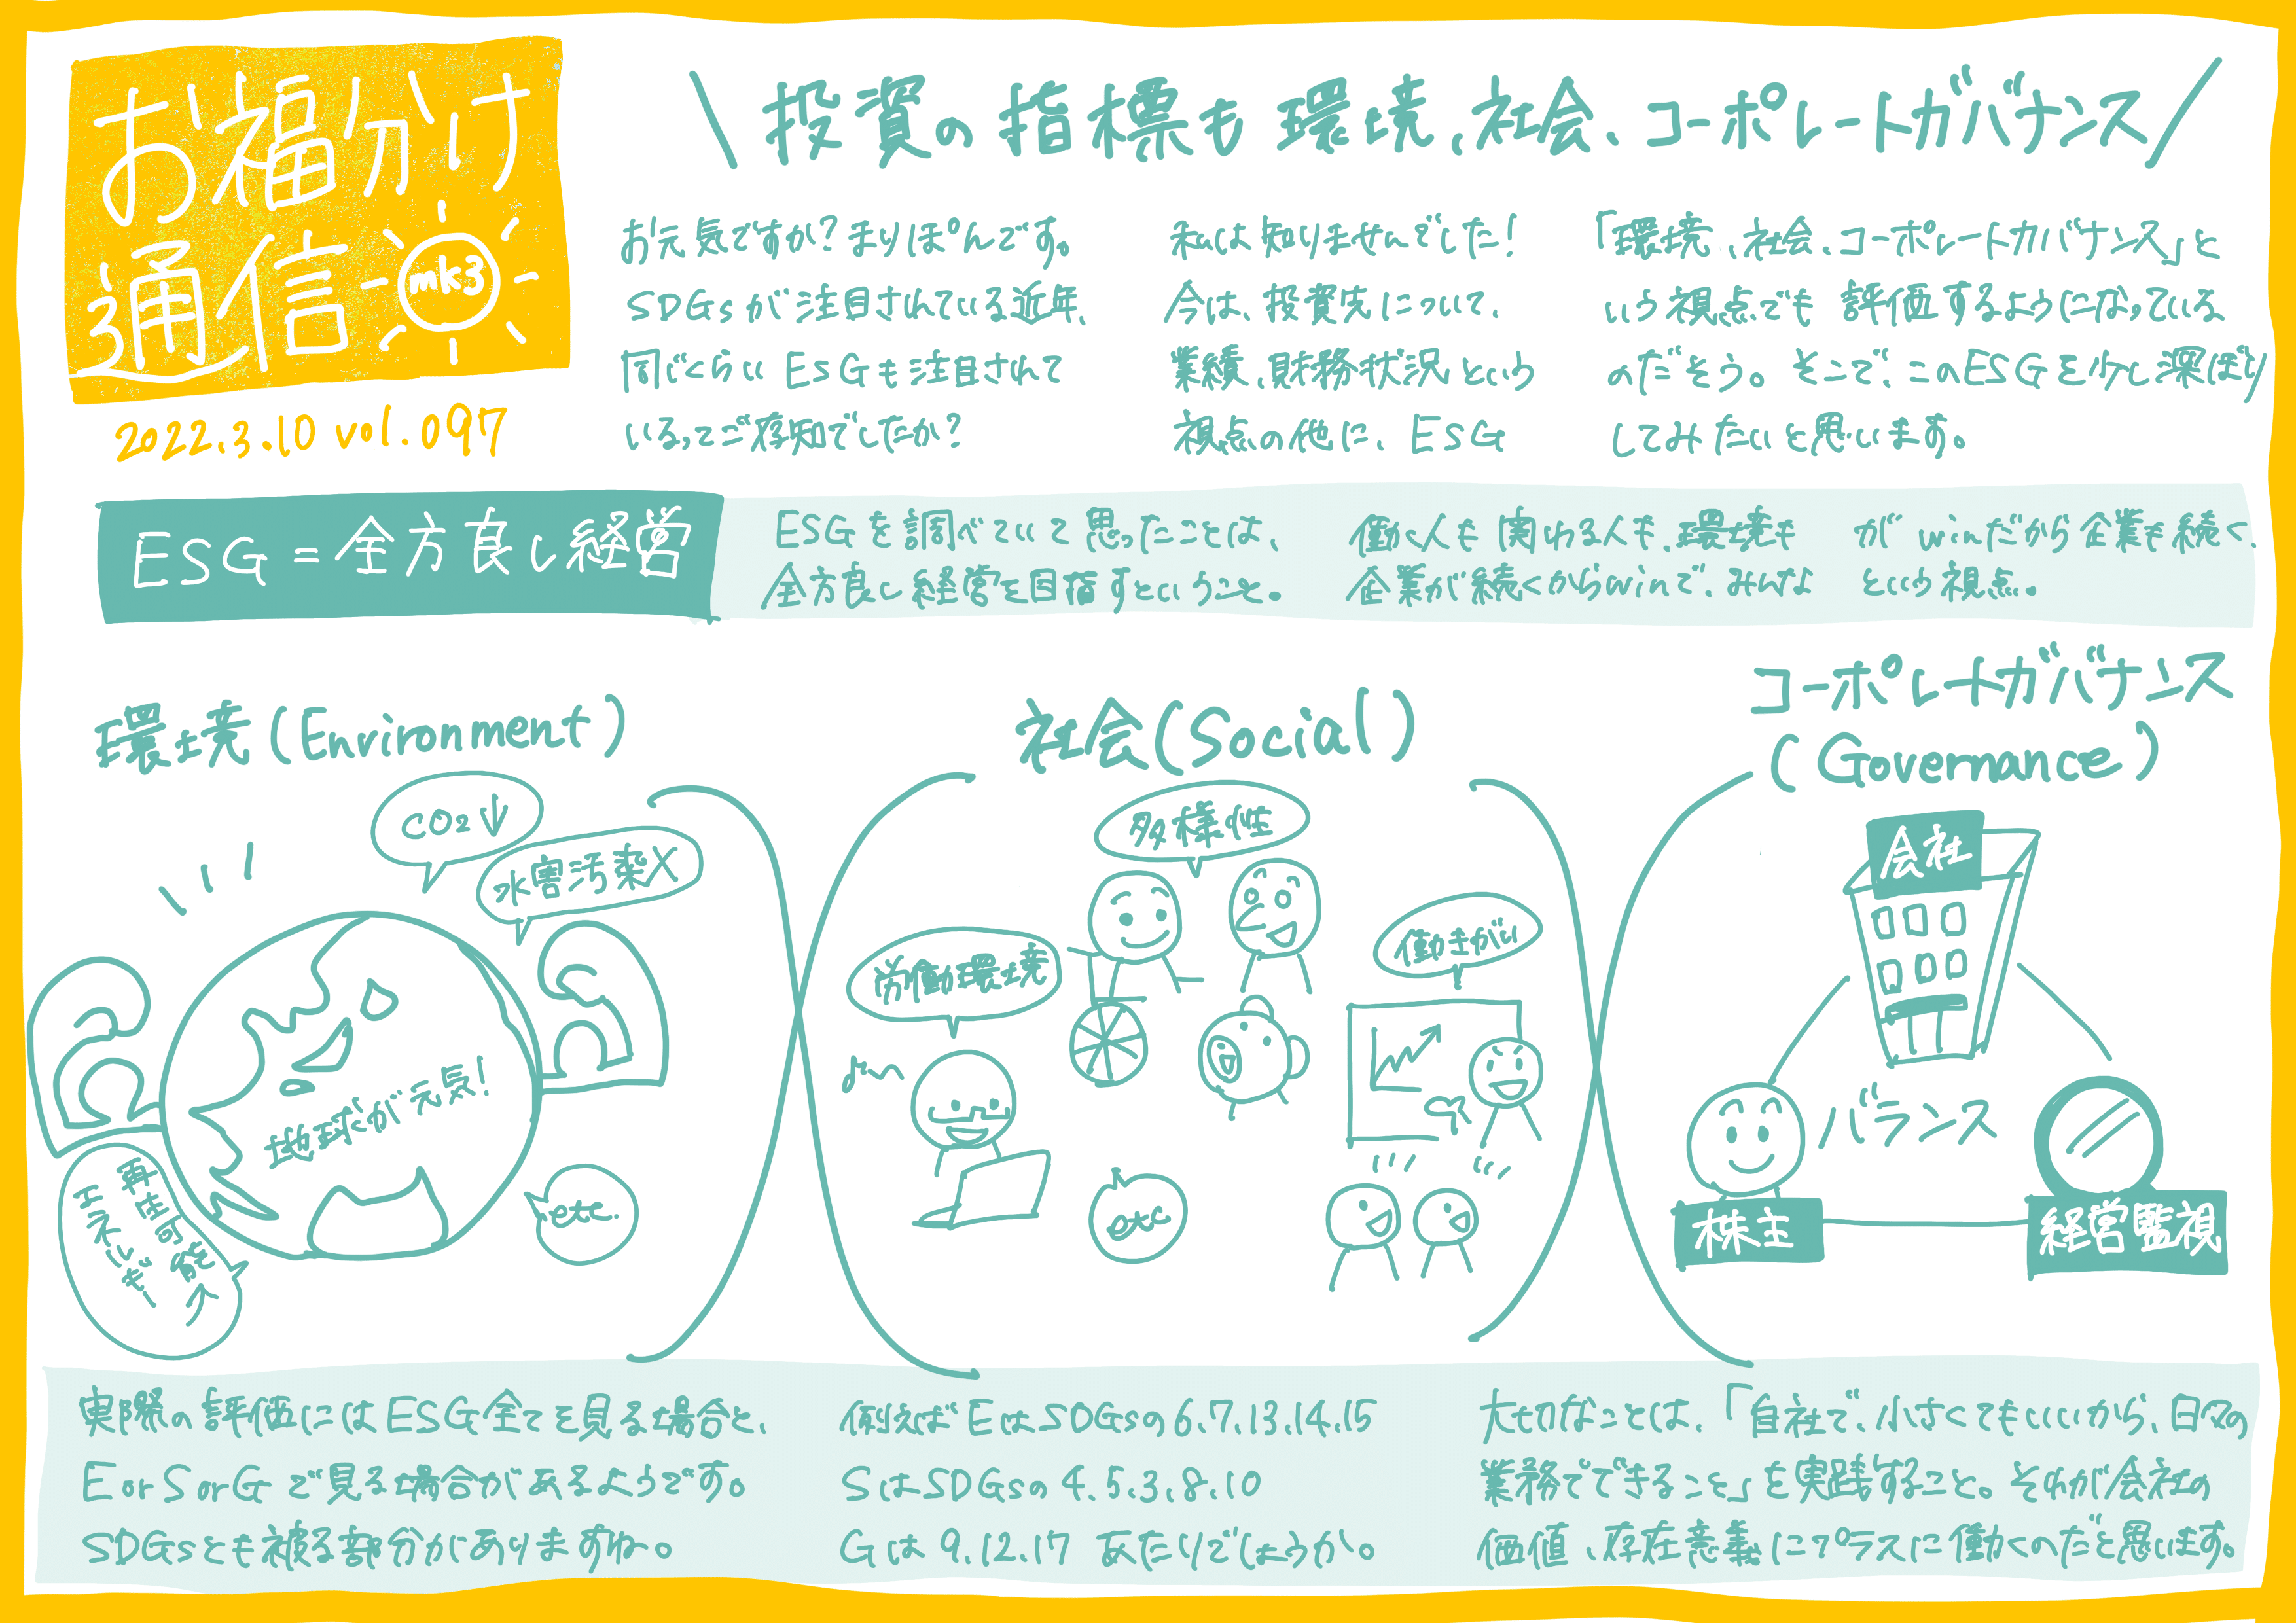 お福分け
通信
mk3
2022.3.10 vol.097
\ 投資の指標も 環境、社会、コーポレートガバナンス /
お元気ですか？まりぽんです。
SDGsが注目されている近年、
同じくらい ESGも注目されて
いるってご存知でしたか？
私は知りませんでした！
今は、投資先について、
業績、財務状況という
視点の他に、ESG
「環境、社会、コーポレートカバナンス」と
いう視点でも 評価するようになっている
のだそう。そこで、このESGを少し深ぼり
してみたいと思います。
ESG=全方良し経営
ESGを調べていて思ったことは、
全方良し経営を目指すということ。
働く人も関わる人も、環境も
企業が続くからwinで、みんな
がwinだから企業も続く、
という視点。
環境(Environment)
CO2↓
水害汚染X
地球が元気！
再生可能
エネルギー↑
etc.
社会(Social)
多様性
労働環境
働きがい
etc
コーポレートガバナンス
(Governance)
会社
バランス
株主
経営監視
実際の評価にはESG全てを見る場合と、
E or S or G で見る場合があるようです。
SDGsとも被る部分がありますね。
例えば EはSDGsの6.7.13.14.15
SはSDGsの4.5.3.8.10
Gは9.12.17 あたりでしょうか。
大切なことは、「自社で、小さくてもいいから、日々の
業務でできること」を実践すること。それが会社の
価値、存在意義にプラスに働くのだと思います。